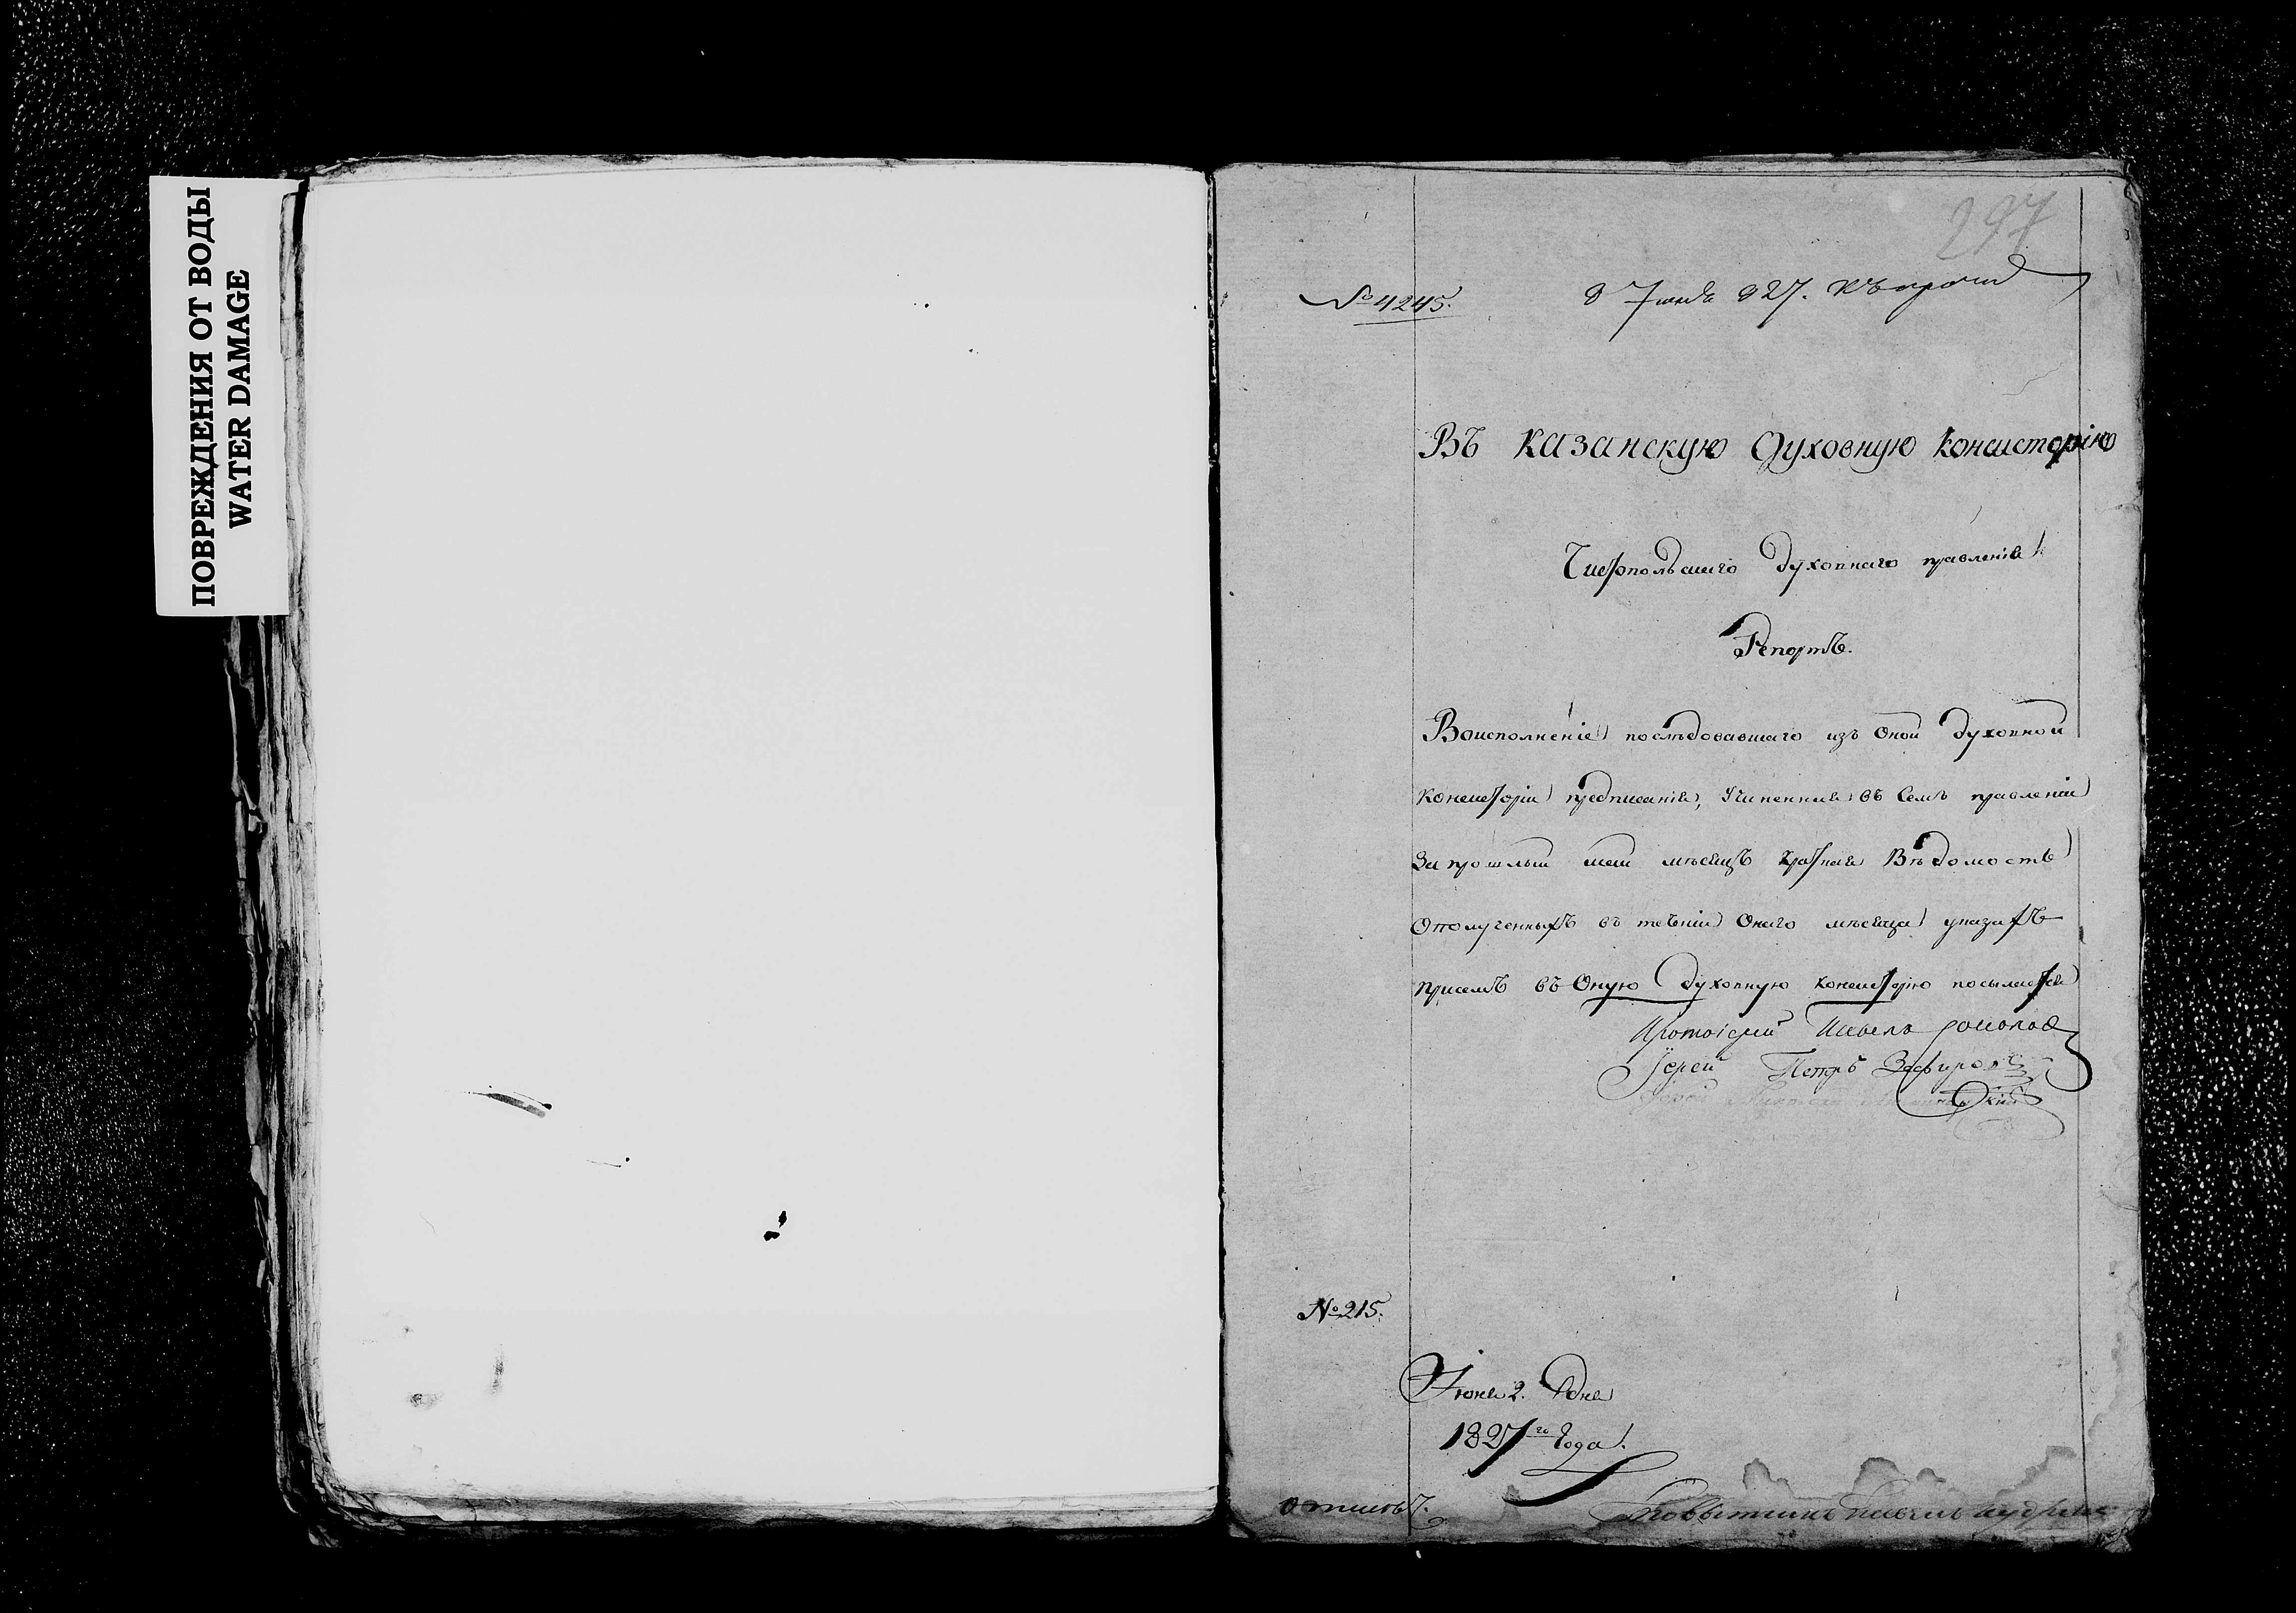 ПОВРЕЖДЕНИЯ ОТ ВОДЫ
WATER DAMAGE
297
№ 4245.
7 июня 827.
Въ Казанскую Духовную Консисторію
Чистопольскаго Духовнаго правленія
Репортъ.
Воисполненіе послѣдовавшаго изъ оной Духовной
Консисторіи предписанія, Учиненная въ Семъ правленіи
За прошлый май мѣсяцъ краткая Вѣдомость
Ополученныхъ въ теченіи Онаго мѣсяца указахъ
присемъ въ Оную Духовную Консисторію посылается
Протоіерей Павелъ
Іерей Петръ Зефировъ
Іерей
№ 215.
Іюня 2. Дня
1827го Года.
Повытчикъ